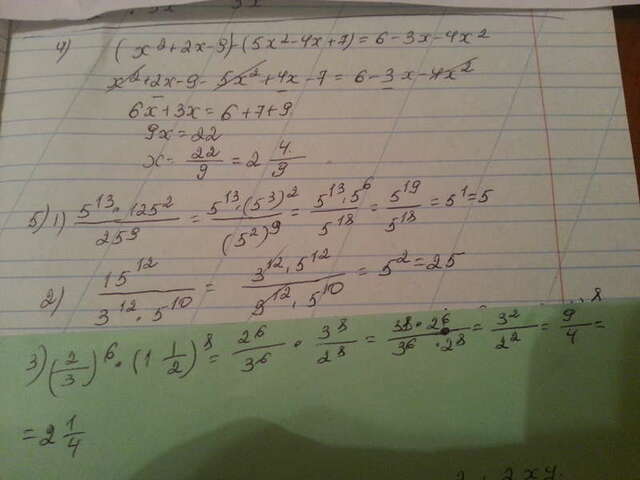 4) (x²+2x-9)-(5x²-4x+7)=6-3x-4x²
x²+2x-9-5x²+4x-7=6-3x-4x²
6x+3x=6+7+9
9x=22
x=22/9=2 4/9
5) 1) 5¹³·125²/25⁹=5¹³·(5³)²/(5²)⁹=5¹³·5⁶/5¹⁸=5¹⁹/5¹⁸=5¹=5
2) 15¹²/3¹²·5¹⁰=3¹²·5¹²/3¹²·5¹⁰=5²=25
3) (2/3)⁶·(1 1/2)⁸=2⁶/3⁶·3⁸/2⁸=3⁸·2⁶/3⁶·2⁸=3²/2²=9/4=
=2 1/4